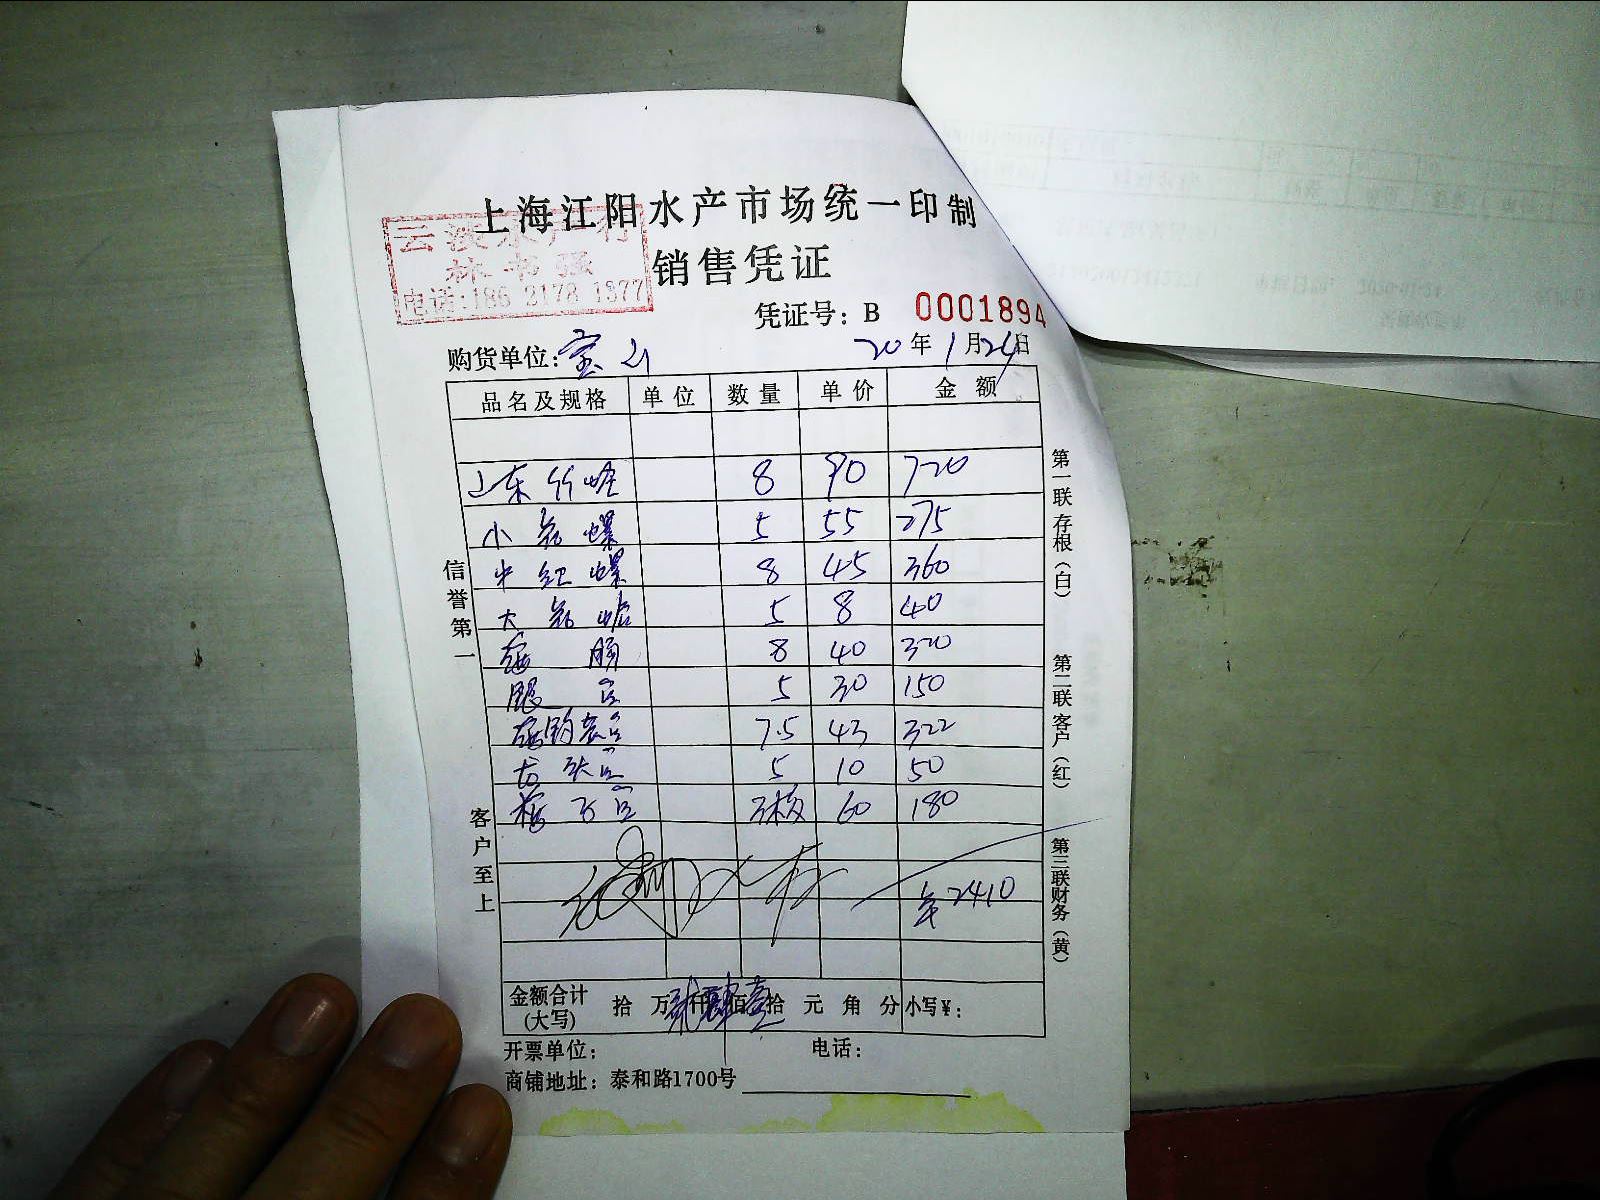 上海江阳水产市场统一印制
林书强
销售凭证
电话:186 2178 1377
凭证号: B 0001894
购货单位: 宝山 20年1月24日
品名及规格 单位 数量 单价 金额
山东竹蛏 8 90 720
小 螺 5 55 275
中红螺 8 45 360
大 蛤 5 8 40
8 40 320
5 30 150
7.5 43 322
5 10 50
60 180
2410
金额合计(大写) 拾 万 贰仟肆佰壹拾 元 角 分 小写¥:
开票单位: 电话:
商铺地址: 泰和路1700号
信誉第一
客户至上
第一联存根(白)
第二联客户(红)
第三联财务(黄)